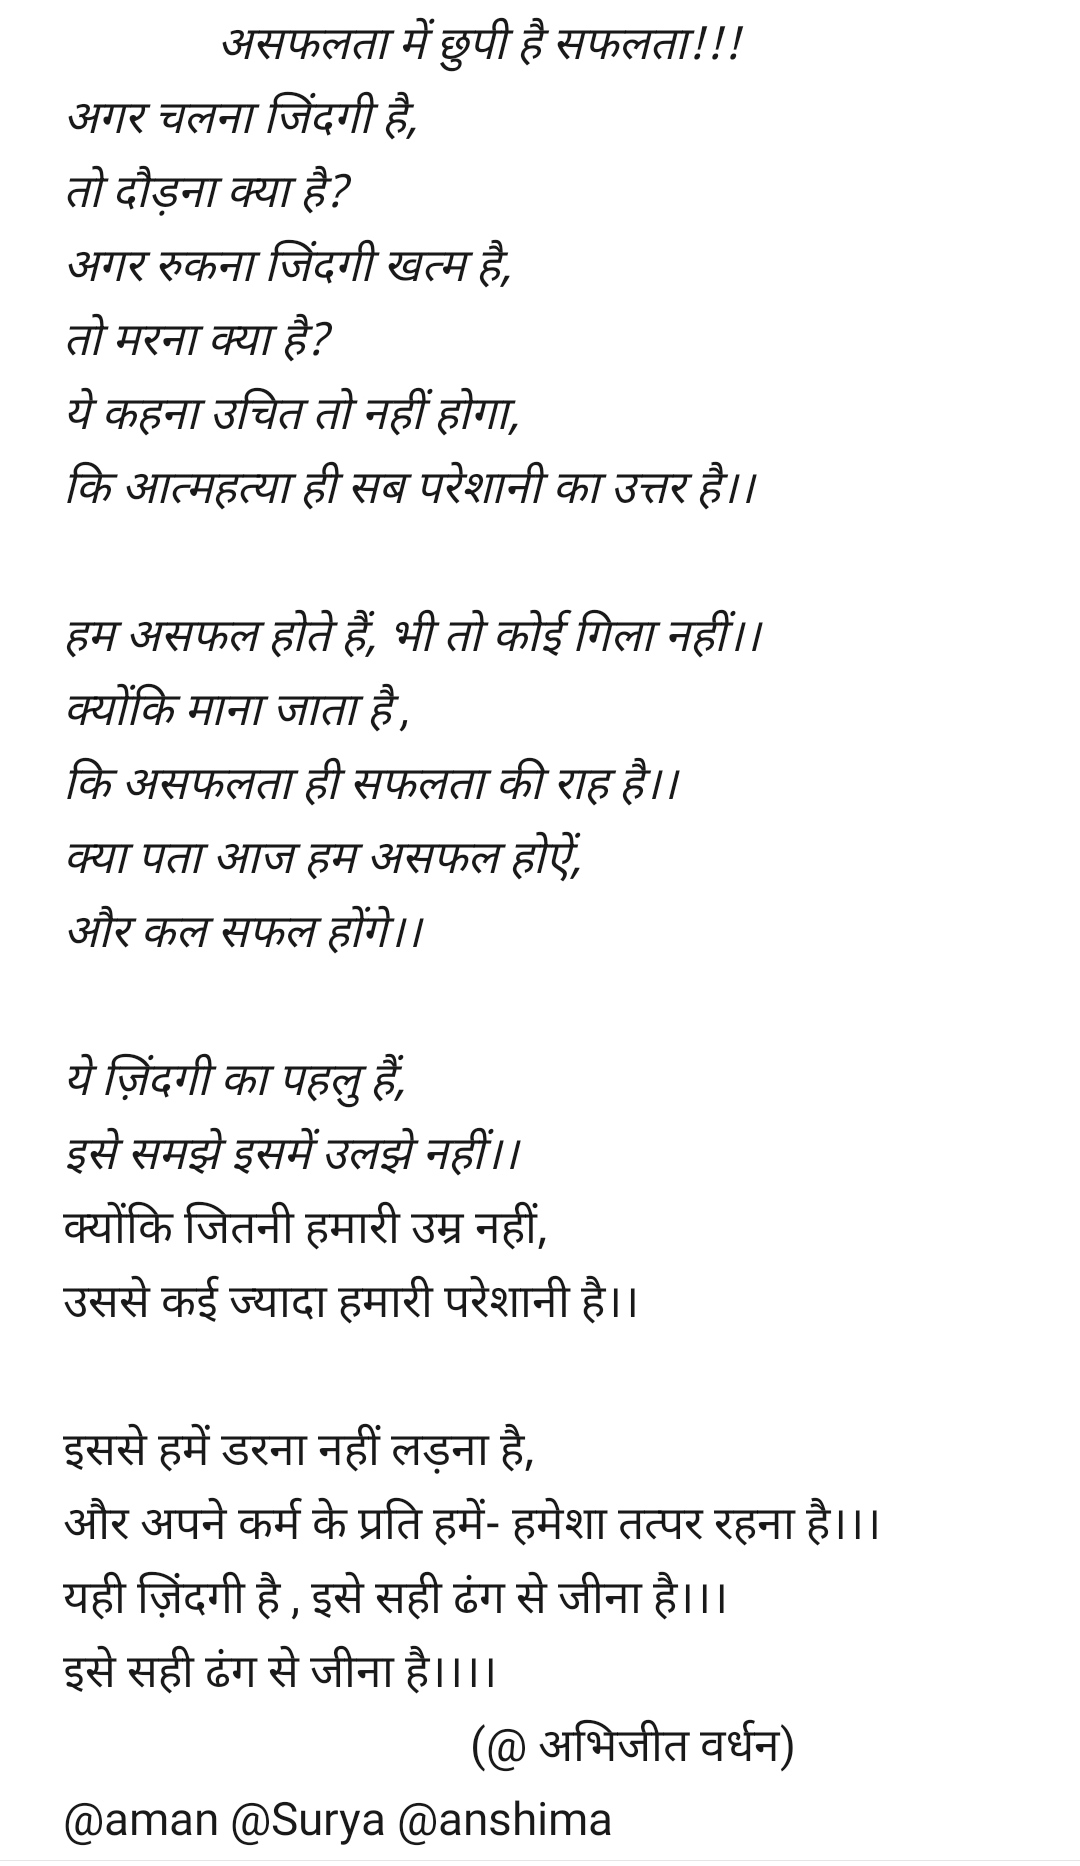 असफलता में छुपी है सफलता!!!
अगर चलना जिंदगी है,
तो दौड़ना क्या है?
अगर रुकना जिंदगी खत्म है,
तो मरना क्या है?
ये कहना उचित तो नहीं होगा,
कि आत्महत्या ही सब परेशानी का उत्तर है।।
हम असफल होते हैं, भी तो कोई गिला नहीं।।
क्योंकि माना जाता है,
कि असफलता ही सफलता की राह है।।
क्या पता आज हम असफल होऐं,
और कल सफल होंगे।।
ये ज़िंदगी का पहलु हैं,
इसे समझे इसमें उलझे नहीं।।
क्योंकि जितनी हमारी उम्र नहीं,
उससे कई ज्यादा हमारी परेशानी है।।
इससे हमें डरना नहीं लड़ना है,
और अपने कर्म के प्रति हमें- हमेशा तत्पर रहना है।।।
यही ज़िंदगी है , इसे सही ढंग से जीना है।।।
इसे सही ढंग से जीना है।।।।
(@ अभिजीत वर्धन)
@aman @Surya @anshima